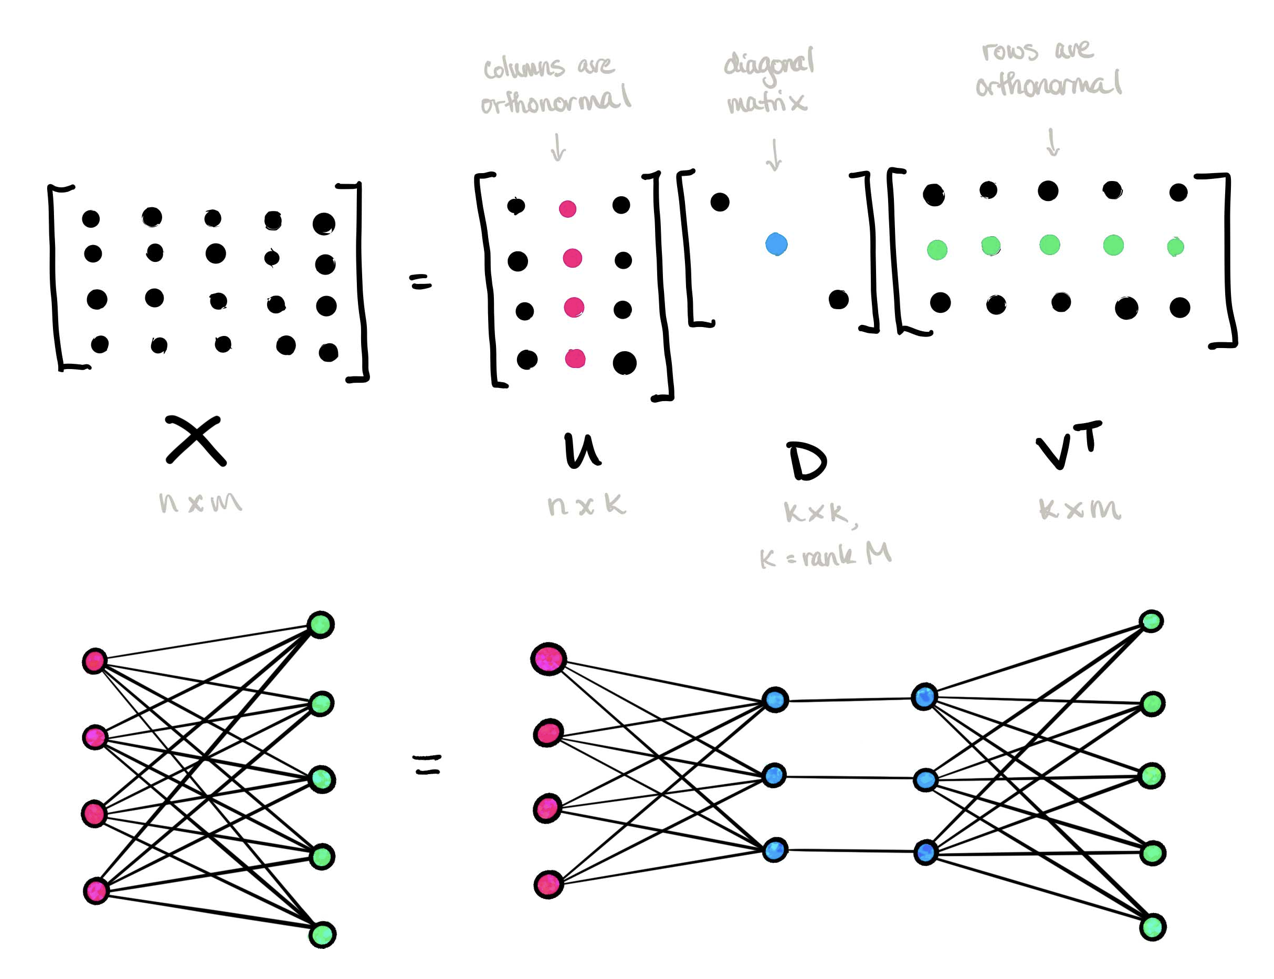 columns are
orthonormal
diagonal
matrix
rows are
orthonormal
=
X
U
D
Vᵀ
n x m
n x k
k x k,
k = rank M
k x m
=